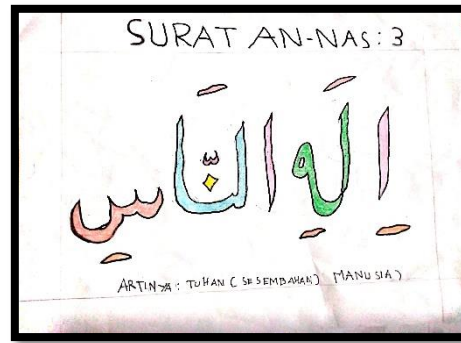 SURAT AN-NAS: 3
اِلَهِ النَّاسِ
ARTINYA: TUHAN (SESEMBAHAN) MANUSIA)